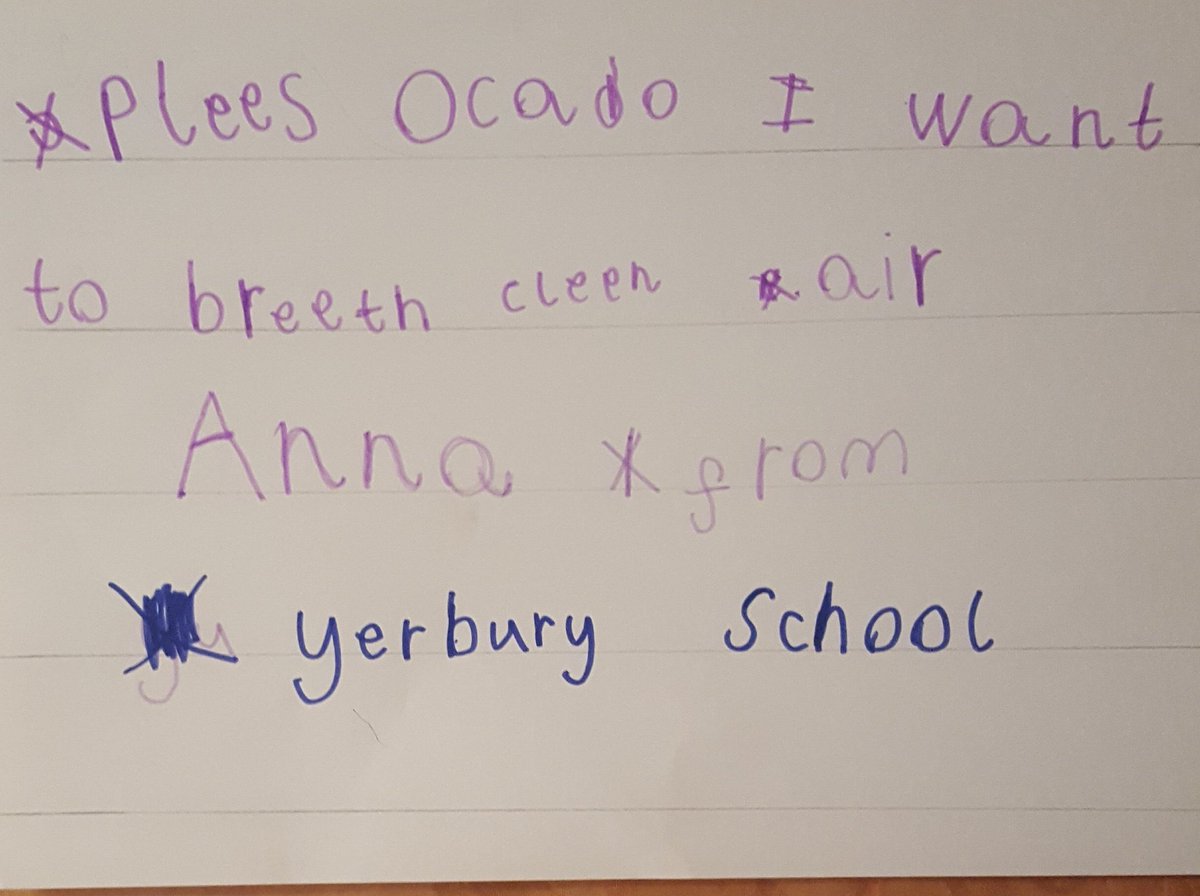 Plees Ocado I want
to breeth cleen air
Anna from
yerbury School